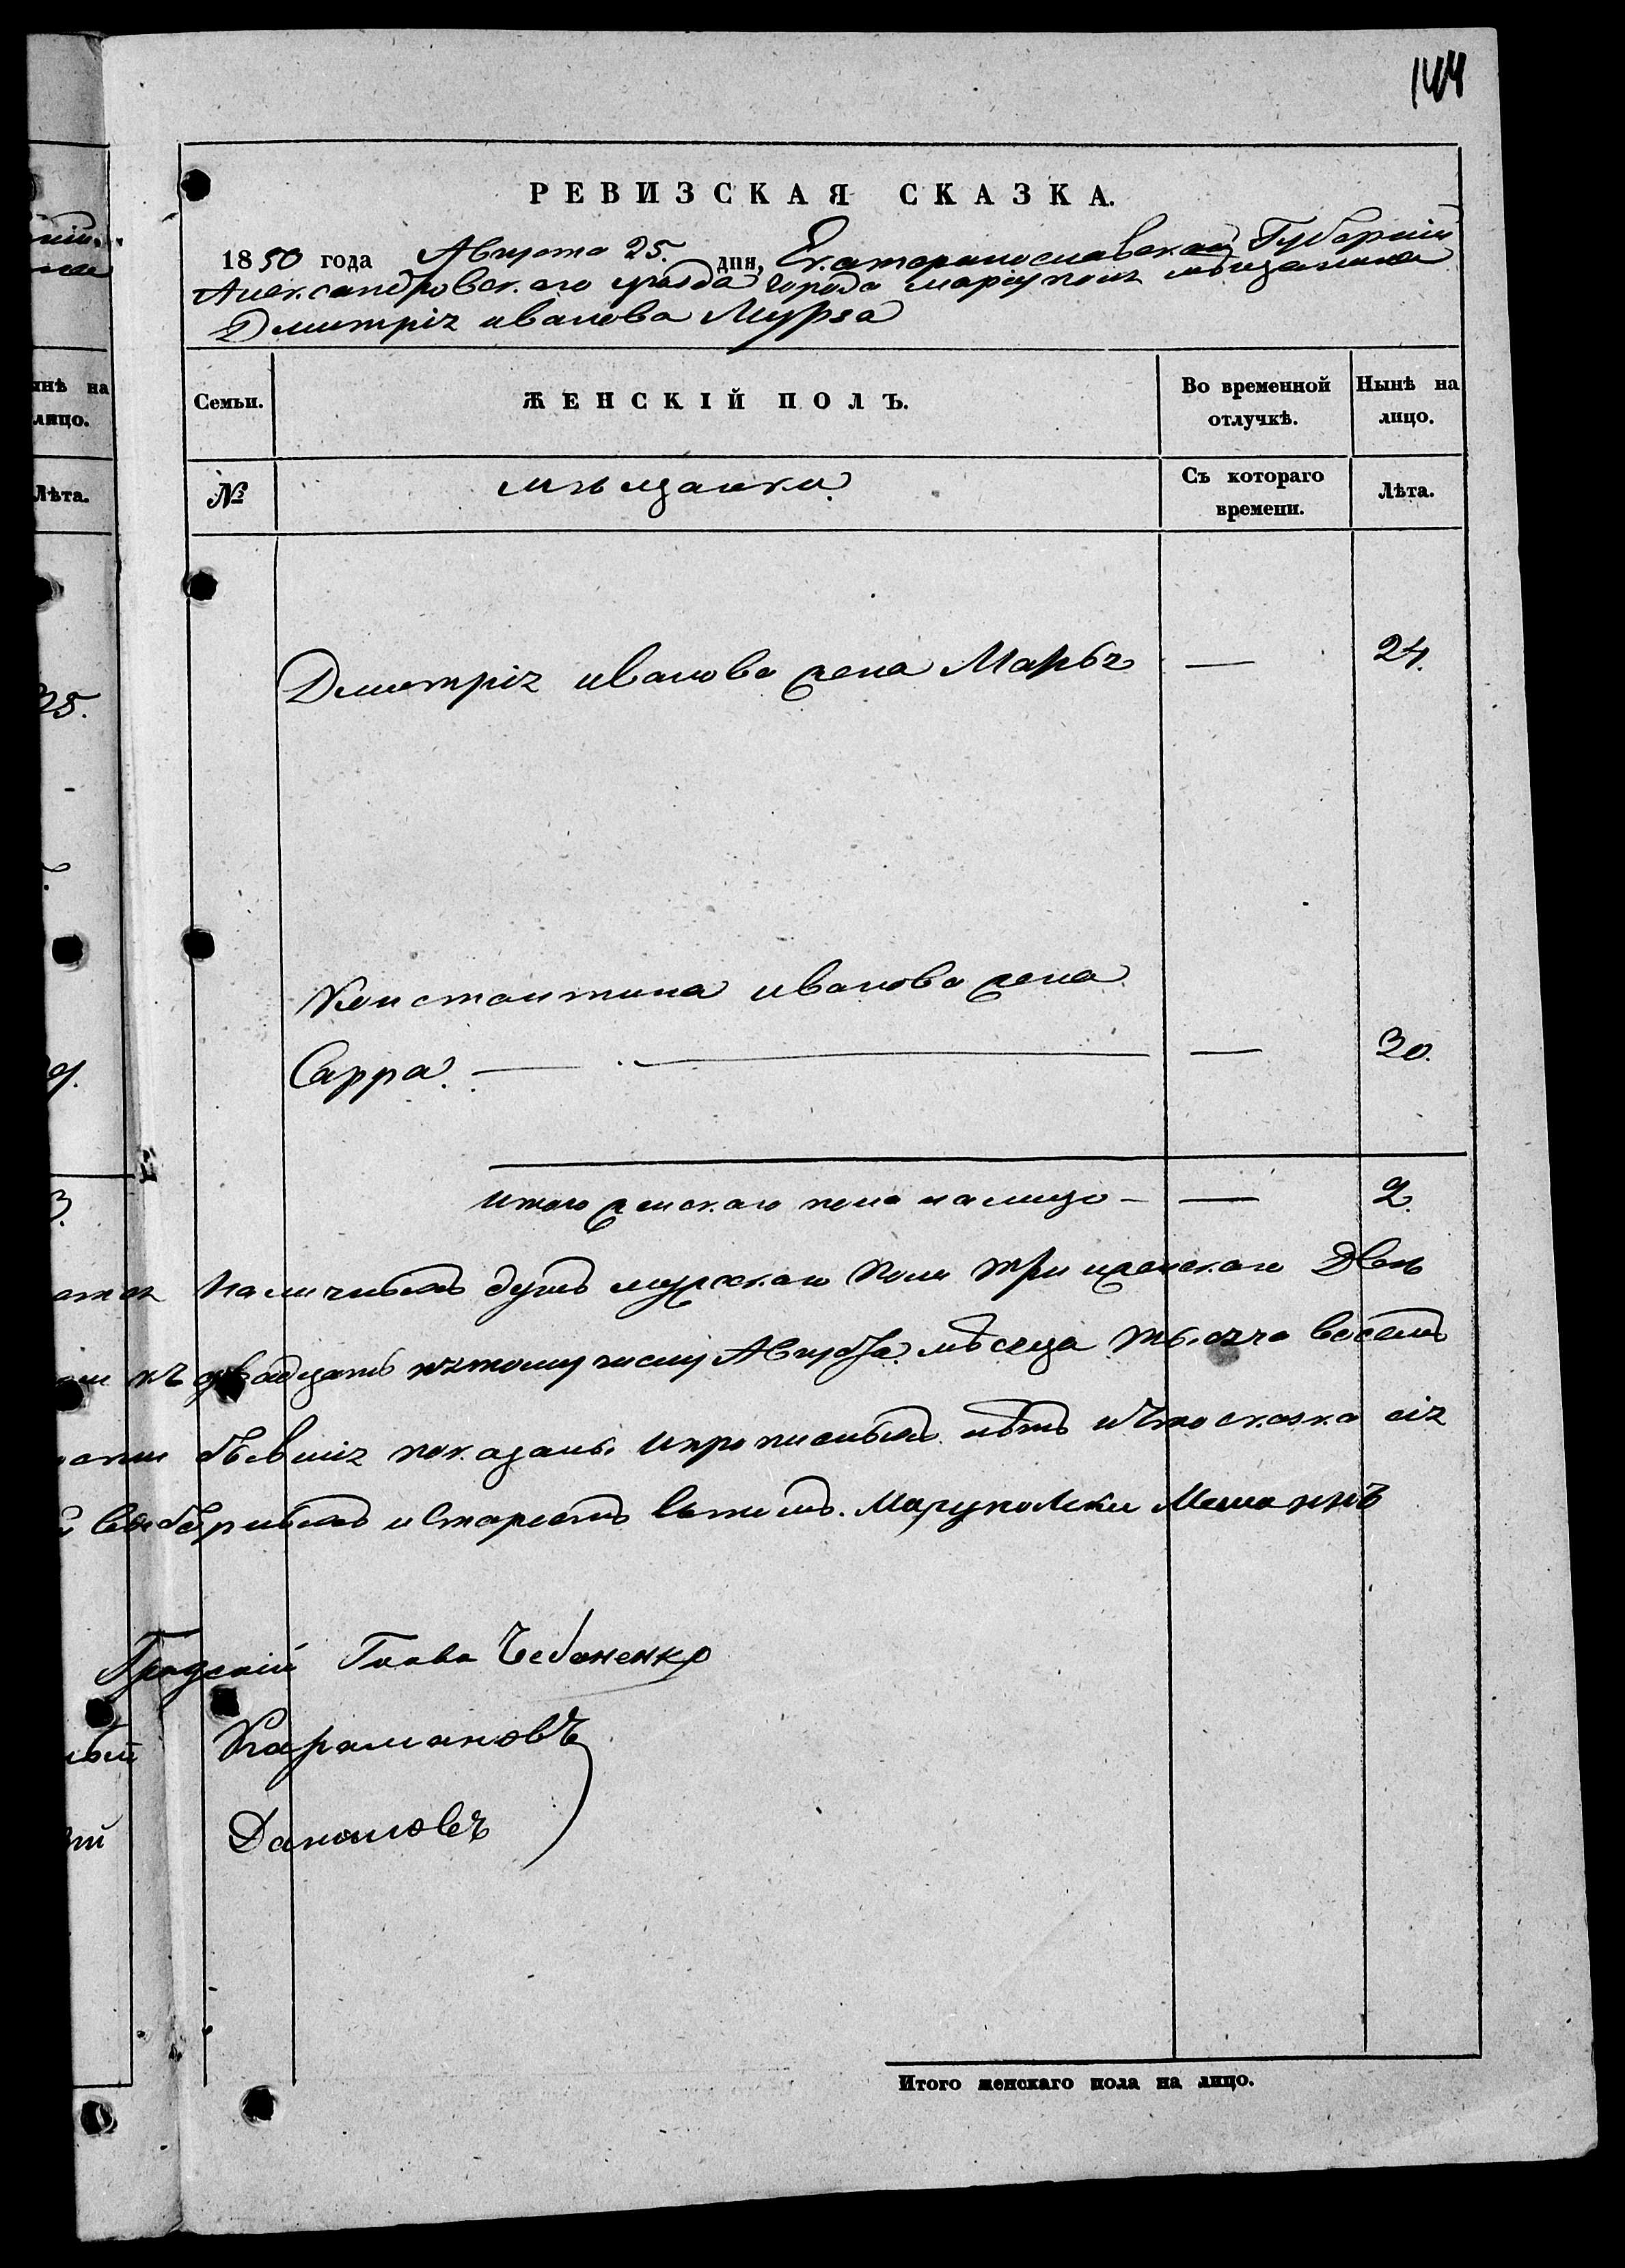 144
РЕВИЗСКАЯ СКАЗКА.
1850 года Августа 25. дня, Екатеринославской Губерніи
Александровского уезда города маріуполя мѣщанина
Дмитрія иванова Мурза
Семьи. ЖЕНСКІЙ ПОЛЪ. Во временной отлучкѣ. Нынѣ на лицо.
№ мѣщанки. Съ котораго времени. Лѣта.
Дмитрія иванова жена Марья — 24.
Константина иванова жена
Сарра. — — — 30.
Итого женскаго пола на лицо — — 2.
наличныхъ душъ мужскаго пола три и женскаго двѣ
къ двадцать пятому числу Августа мѣсяца тысяча восемъ
бывшіе показаны и прописныхъ нѣтъ и что сказка сія
и старостъ
Градскій Глава Чебаненко
Карамановъ
нынѣ на
лицо.
Лѣта.
25.
Итого женскаго пола на лицо.